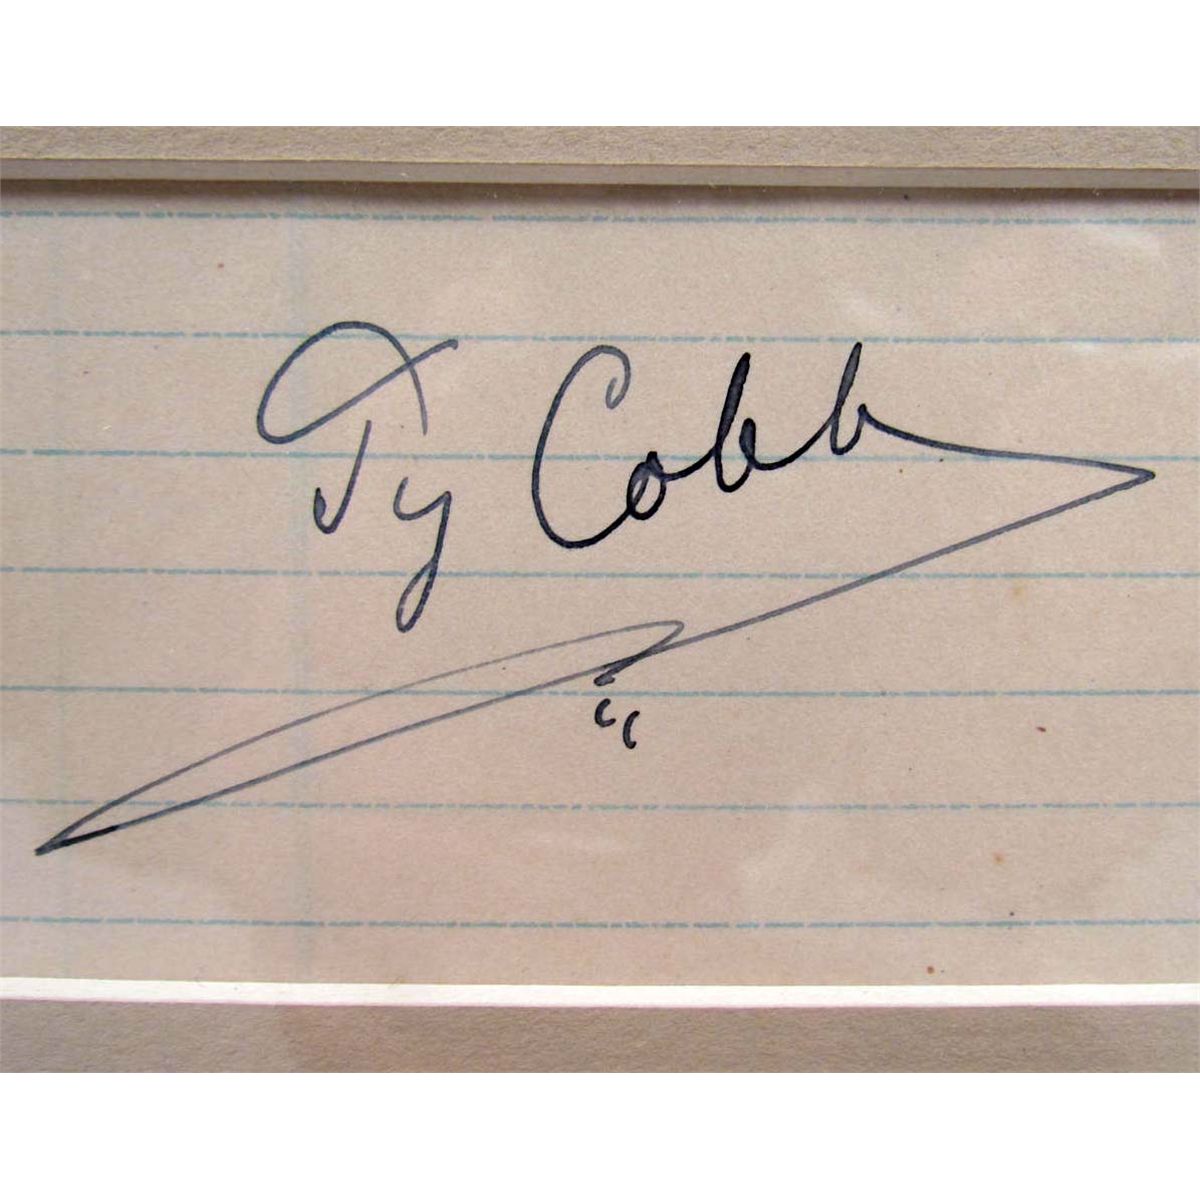 Ty Cobb